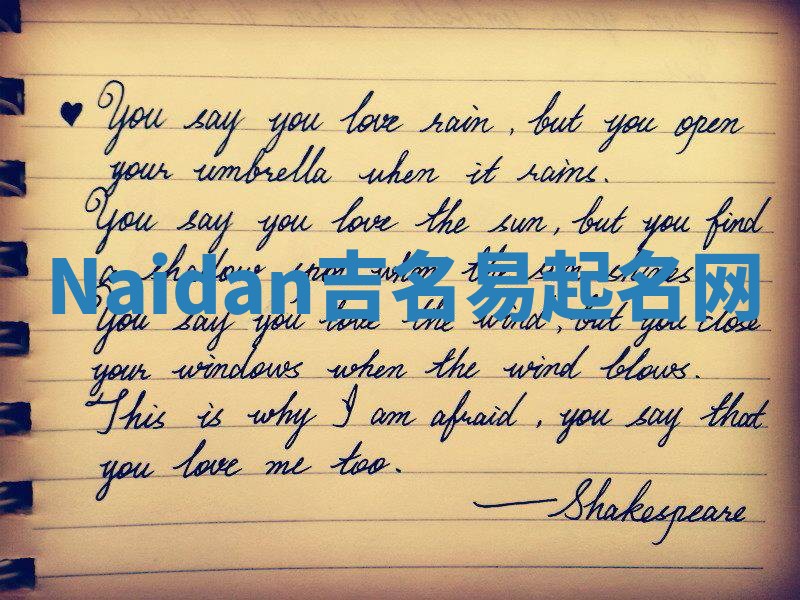 ♥ You say you love rain, but you open
your umbrella when it rains.
You say you love the sun, but you find
a shadow spot when the sun shines
Naidan吉名易起名网
You say you love the wind, but you close
your windows when the wind blows.
This is why I am afraid, you say that
you love me too.
— Shakespeare